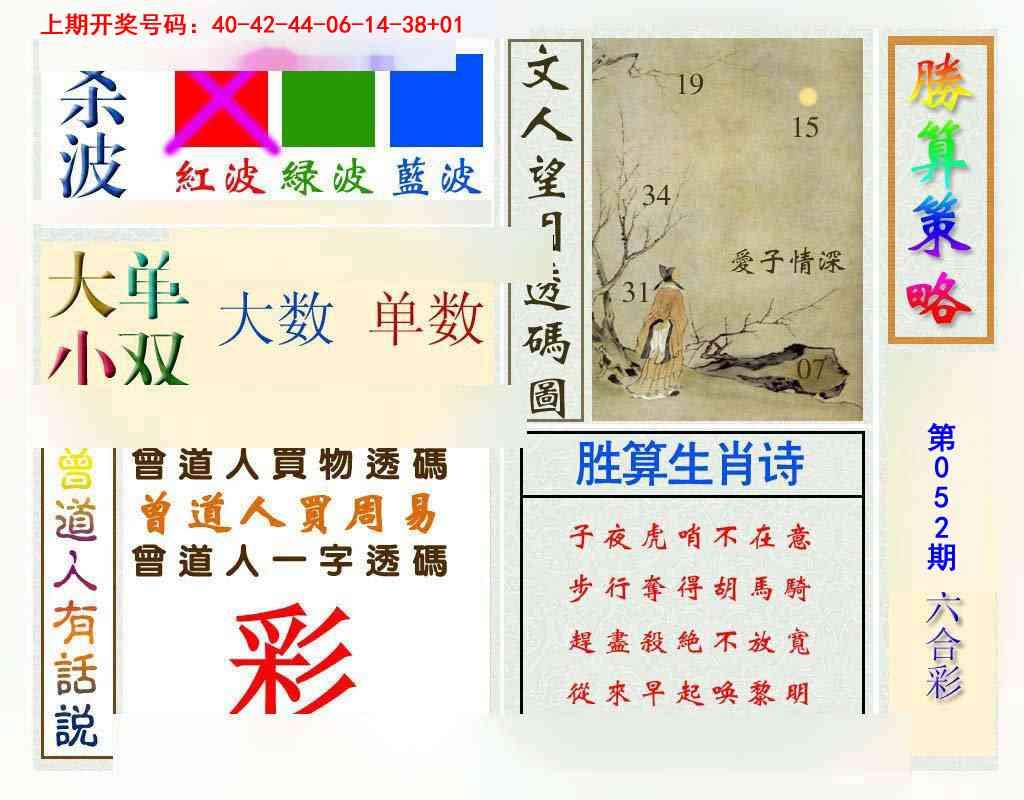 上期开奖号码：40-42-44-06-14-38+01
杀波
紅波 绿波 藍波
大单
小双
大数 单数
文人望月透碼圖
19
15
34
愛子情深
31
07
勝算策略
第052期
六合彩
曾道人有話説
曾道人買物透碼
曾道人買周易
曾道人一字透碼
彩
胜算生肖诗
子夜虎哨不在意
步行奪得胡馬騎
趕盡殺絶不放寬
從來早起唤黎明